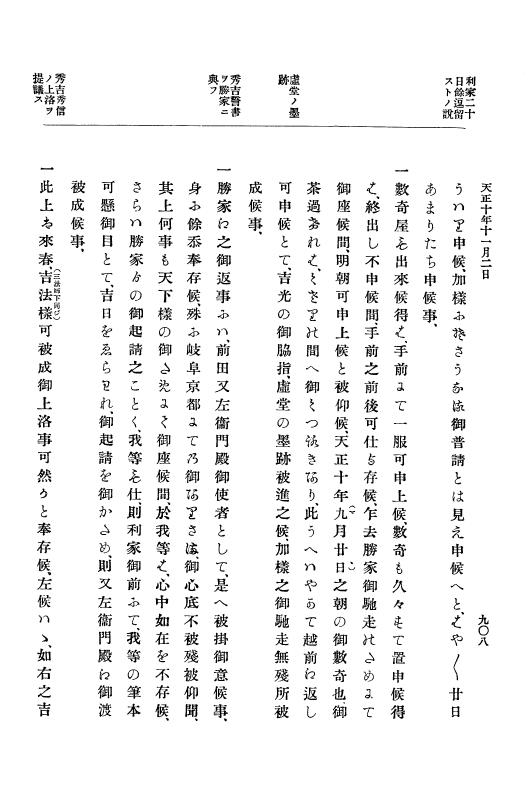 天正十年十一月二日
九〇八
利家二十
日餘逗留
ストノ說
ういを申候、加樣におさうなは御普請とは見え申候へと、はや〱廿日
あまりたち申候事、
一數奇屋を出來候得は、手前まて一服可申上候、數奇も久々まて置申候得
は、終出し不申候間、手前之前後可仕と存候、乍去勝家御馳走のためまて
御座候間、明朝可申上候と被仰候、天正十年九月廿日之朝の御數奇也、御
虛堂ノ墨
跡
茶過されは、くさりの間へ御くつろきあり、此うへいやかて越前へ返し
可申候とて、吉光の御脇指、虛堂の墨跡被進之候、加樣之御馳走無殘所被
成候事、
秀吉誓書
ヲ勝家ニ
與フ
一勝家へ之御返事に、前田又左衞門殿御使者として、是へ被掛御意候事、
身に餘忝奉存候、殊に岐阜京都まての御なをさは、御心底不被殘被仰聞、
其上何事も天下樣の御ためよく御座候間、於我等は、心中如在を不存候、
さらハ勝家との御起請之ことく、我等も仕、則利家御前にて、我等の筆本
可懸御目とて、吉日をゑらはれ、御起請を御かため、則又左衞門殿へ御渡
被成候事、
秀吉秀信
ノ上洛ヲ
提議ス
一此上は來春、吉法樣(三法師下同ジ)可被成御上洛事可然かと奉存候、左候ハヽ、如右之吉